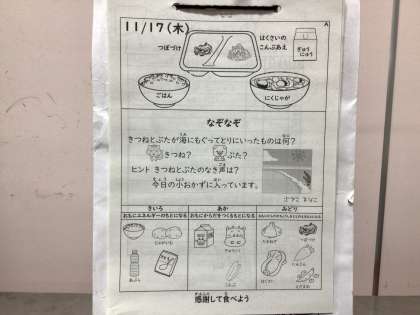 11/17(木)
A
つぼづけ
はくさいの
こんぶあえ
ぎゅう
にゅう
ごはん
にくじゃが
なぞなぞ
きつねとぶたが海にもぐってとりにいったものは何?
きつね?
ぶた?
ヒント きつねとぶたのなき声は?
今日の小おかずに入っています。
きいろ
あか
みどり
おもにエネルギーのもとになる
おもにからだをつくるもとになる
じゃがいも
あぶら
ぎゅうにく
こんぶ
たまねぎ
つぼづけ
にんじん
はくさい
感謝して食べよう